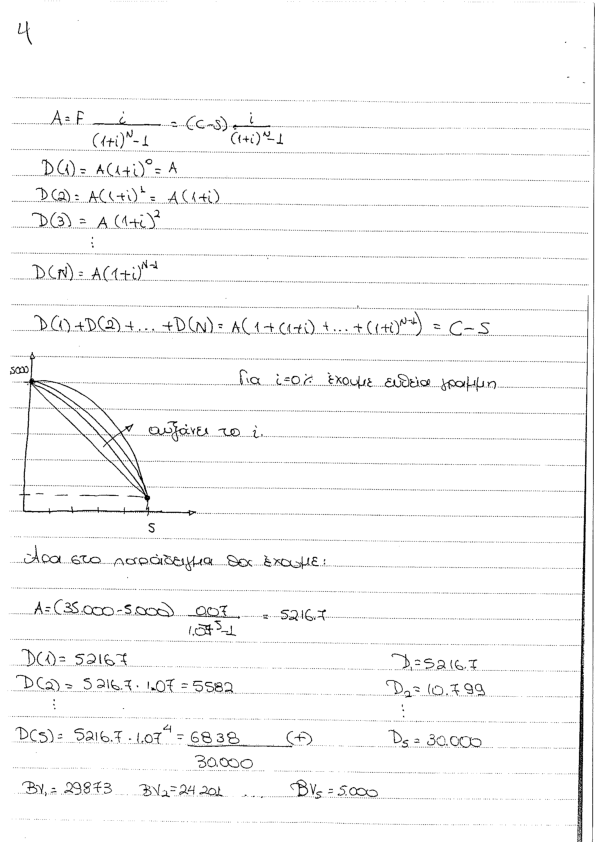 4
A = F i/((1+i)^N - 1) = (C-S) i/((1+i)^N - 1)
D(1) = A(1+i)^0 = A
D(2) = A(1+i)^1 = A(1+i)
D(3) = A(1+i)^2
⋮
D(N) = A(1+i)^(N-1)
D(1)+D(2)+...+D(N) = A(1+(1+i)+...+(1+i)^(N-1)) = C-S
5000
Για i=0% έχουμε ευθεία γραμμη
αυξάνει το i.
5
Άρα στο παράδειγμα θα έχουμε:
A = (35.000-5.000) 0.07/(1.07^5 - 1) = 5216.7
D(1) = 5216.7 D₁ = 5216.7
D(2) = 5216.7 · 1.07 = 5582 D₂ = 10.799
⋮ ⋮
D(5) = 5216.7 · 1.07^4 = 6838 (+) D₅ = 30.000
30.000
BV₁ = 29873 BV₂ = 24.201 ... BV₅ = 5.000